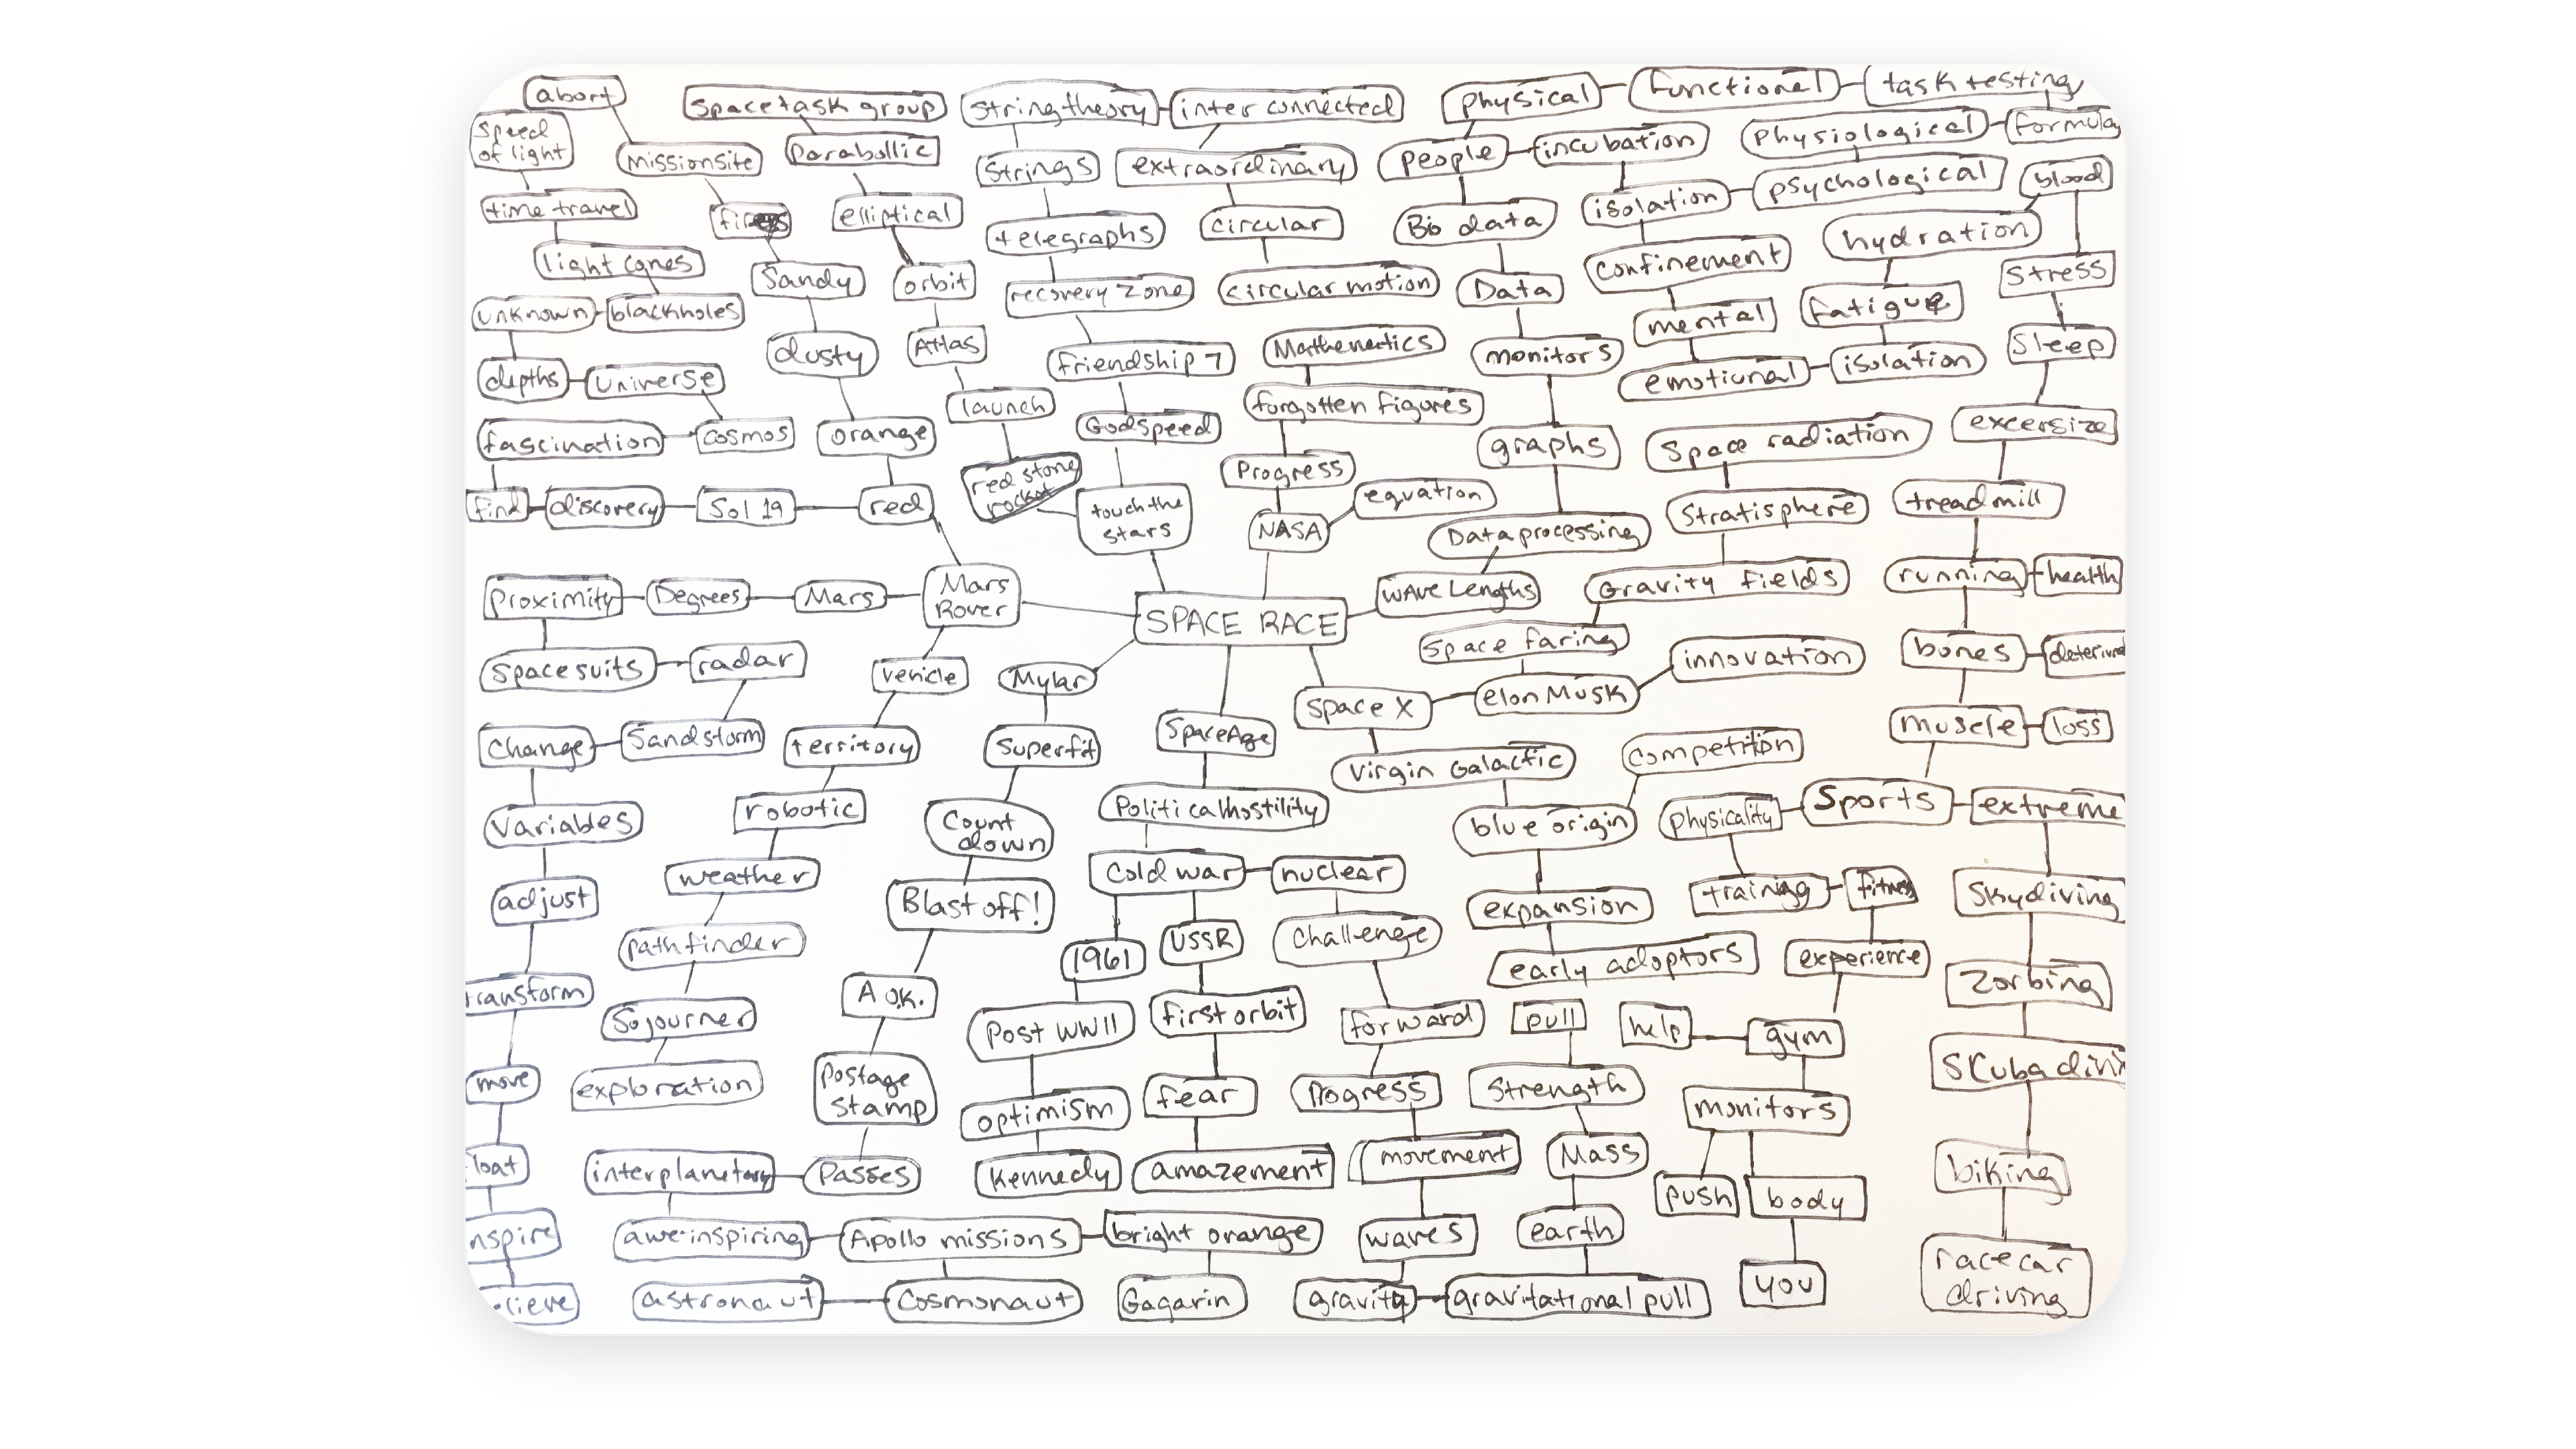 abort
space task group
string theory
inter connected
physical
functional
task testing
speed
of light
mission site
parabollic
strings
extraordinary
people
incubation
physiological
formula
time travel
elliptical
telegraphs
circular
Bio data
isolation
psychological
blood
light cones
Sandy
orbit
recovery zone
circular motion
Data
confinement
hydration
stress
unknown
blackholes
dusty
Atlas
friendship 7
Mathematics
monitors
mental
fatigue
sleep
depths
universe
launch
Godspeed
forgotten figures
emotional
isolation
fascination
cosmos
orange
red stone
rocket
Progress
graphs
space radiation
excersize
find
discovery
Sol 19
red
touch the
stars
NASA
equation
Data processing
Stratisphere
treadmill
Proximity
Degrees
Mars
Mars
Rover
SPACE RACE
wave Lengths
Gravity fields
running
health
space suits
radar
vehicle
Mylar
space faring
innovation
bones
change
Sandstorm
territory
superfit
Space Age
space X
elon Musk
muscle
loss
variables
robotic
Count
down
Political hostility
Virgin Galactic
competition
blue origin
physicality
Sports
extreme
adjust
weather
Blast off!
cold war
nuclear
expansion
training
fitness
skydiving
pathfinder
1961
USSR
challenge
early adoptors
experience
transform
Sojourner
A O.K.
Post WWII
first orbit
forward
pull
help
gym
Zorbing
move
exploration
Postage
stamp
optimism
fear
Progress
strength
monitors
SCuba divin
loat
interplanetary
Passes
Kennedy
amazement
movement
Mass
push
body
biking
nspire
awe-inspiring
Apollo missions
bright orange
waves
earth
you
racecar
driving
elieve
astronaut
Cosmonaut
Gagarin
gravity
gravitational pull